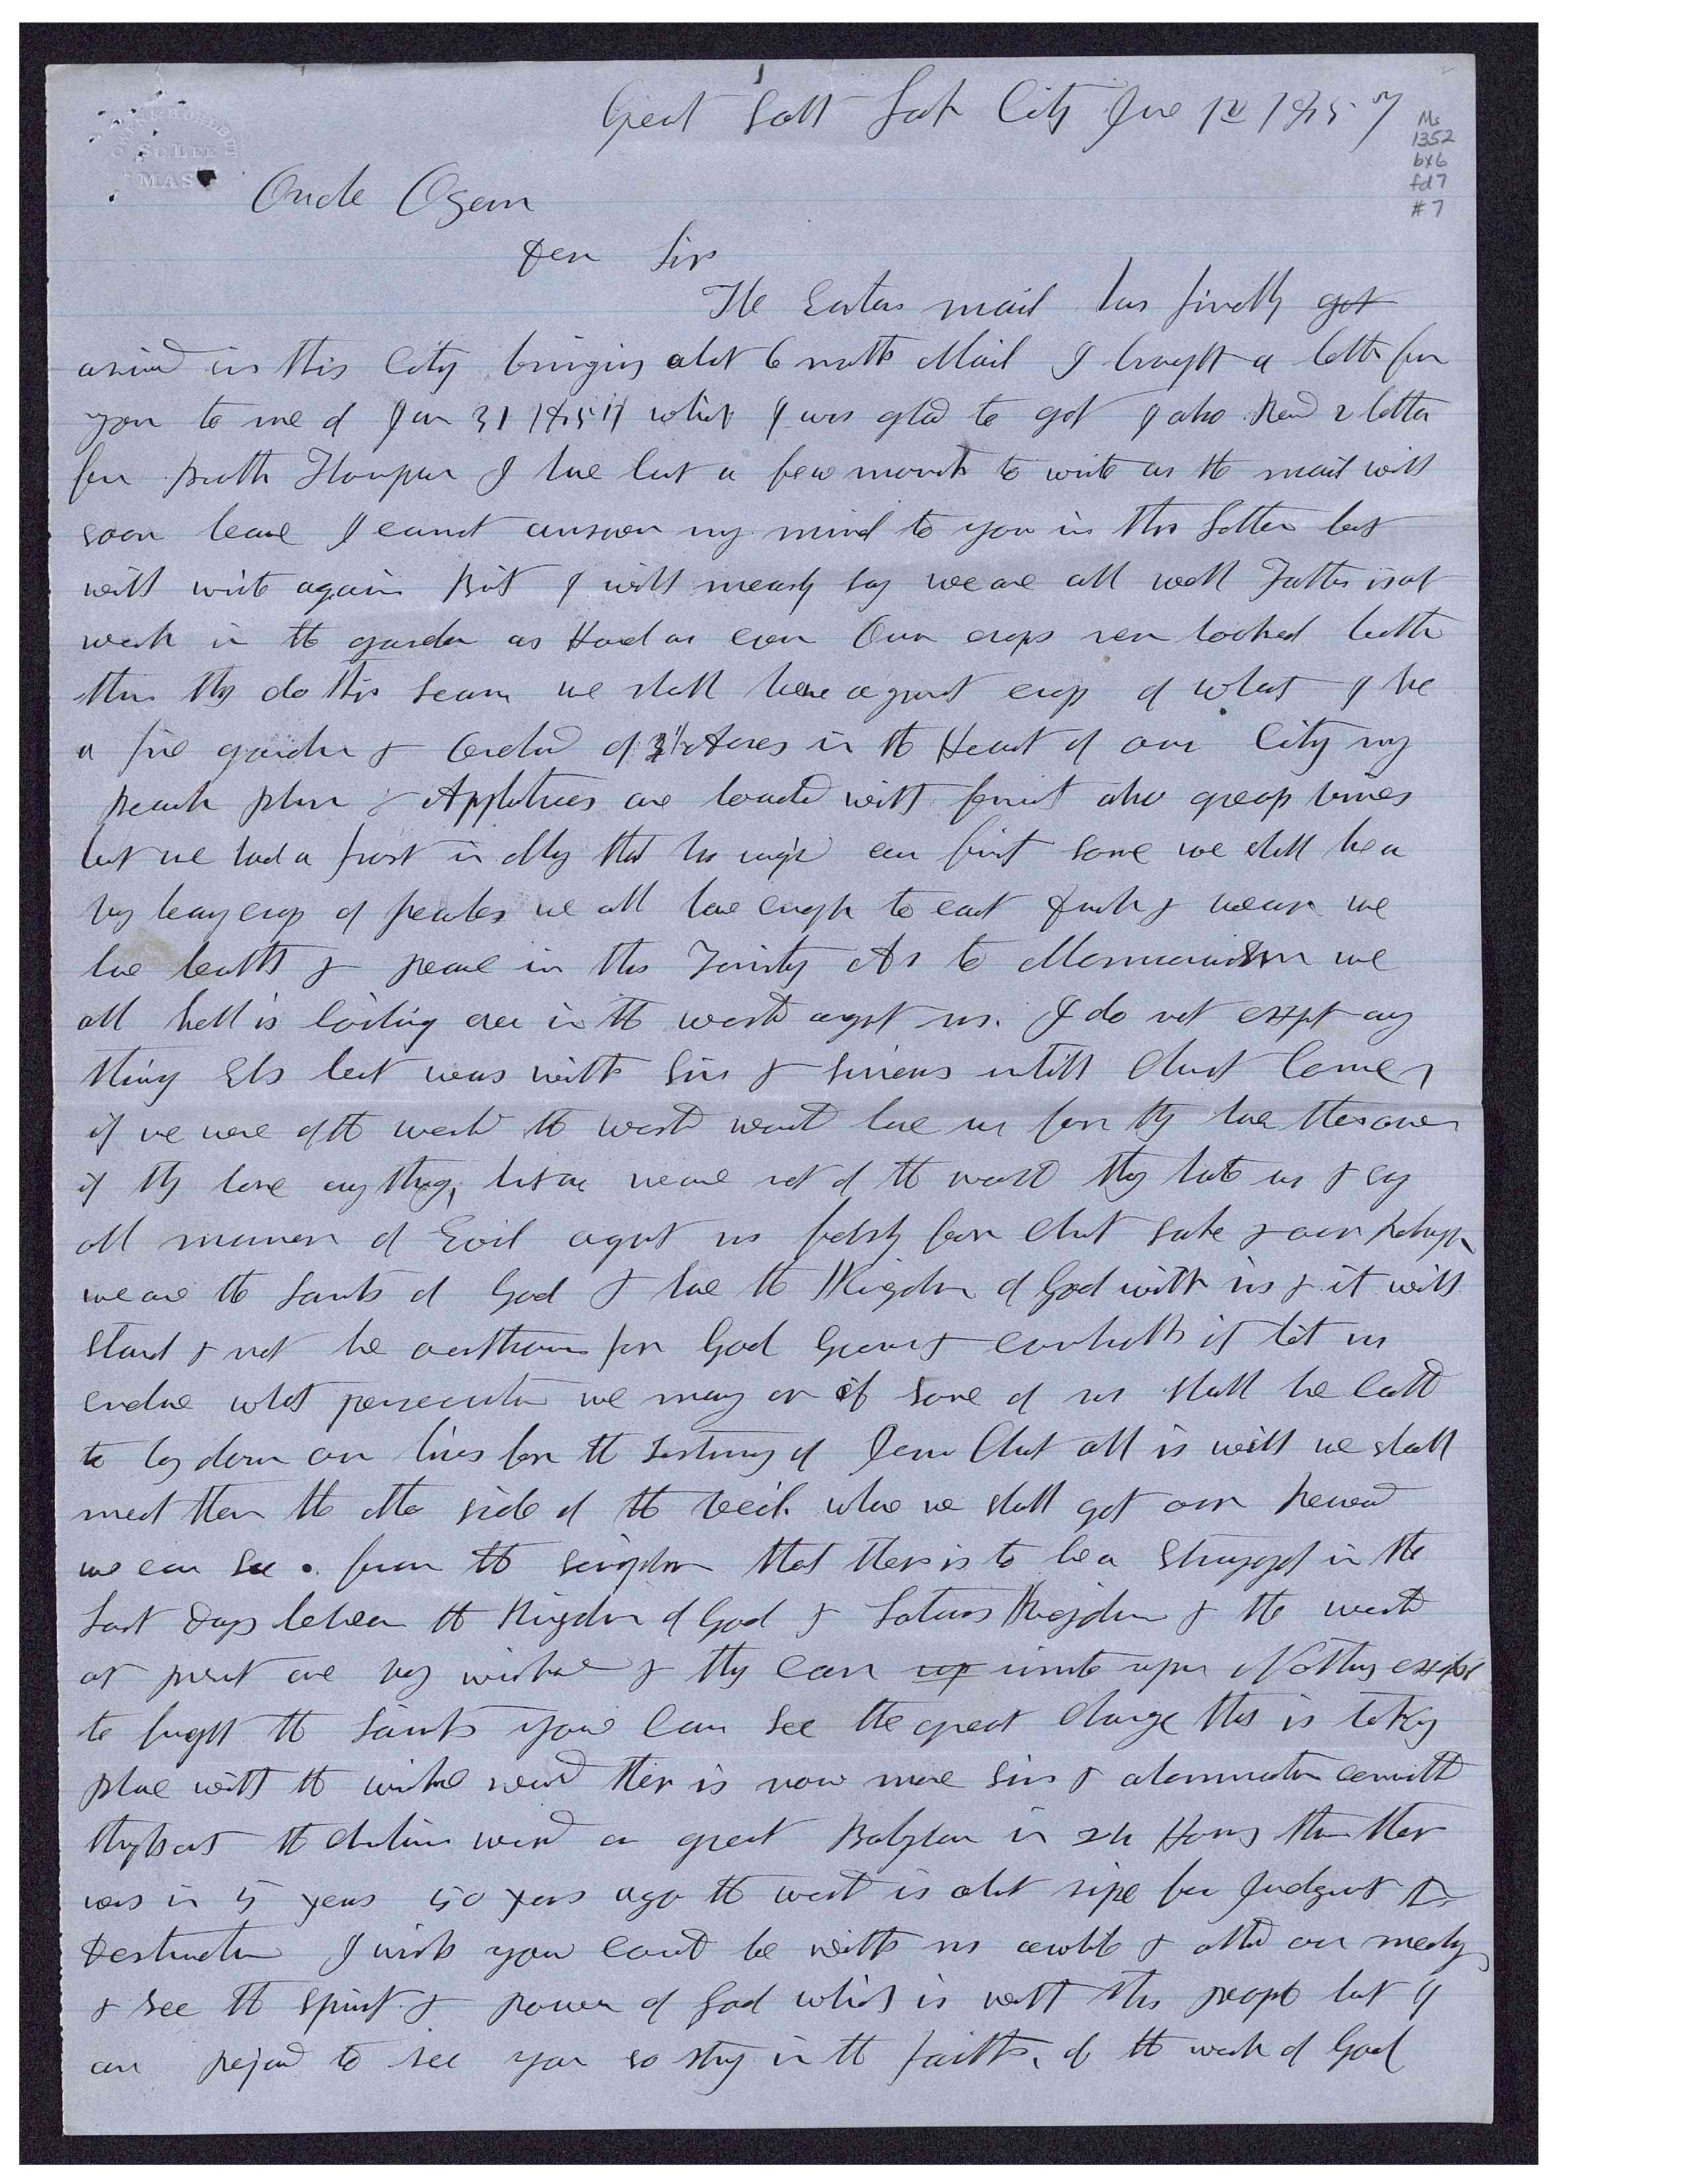 Great Salt Lake City June 1st 1857
Ms
1352
bx6
fd7
#7
MASS
Uncle Ozem
Dear Sir
The Eastern mail has finally got
arived in this City bringing about 6 months Mail I brought a letter from
you to me of Jan 31 1857 which I was glad to get I also Read 2 letters
from Brother Thompson I have but a few moments to write as the mail will
soon leave I cannot answer my mind to you in this Letter but
will write again But I will mearly say we are all well Father is at
work in the garden as Hard as ever Our crops never looked better
than they do this season we shall have a great crop of wheat I have
a fine garden & Orchard of 3 1/2 Acres in the Heart of our City my
Peach plum & Apple trees are loaded with fruit also grape vines
but we had a frost in May that has injured our fruit some we shall have a
very heavy crop of peaches we all have enough to eat drink & wear we
have health & peace in this Territory As to Mormonism we
all hell is boiling over in the world against us. I do not expect any
thing Els but war with Sin & Sinners untill Christ Comes
if we were of the world the world would love us for they love their own
if they love any thing, but as we are not of the world they hate us & say
all manner of Evil against us falsly for Christ sake & our Religion
we are the Saints of God & have the Kingdom of God with us & it will
stand & not be overthrown for God Governs & controlls it let us
endure what persecution we may or if some of us shall be Called
to lay down our lives for the testimony of Jesus Christ all is well we shall
meet them the other side of the veil. where we shall get our Reward
we can see from the scripture that there is to be a struggel in the
Last Days between the Kingdom of God & Satans Kingdom & the world
at present are very wicked & they can up unite upon Nothing except
to fight the Saints you Can See the great Change that is taking
place with the wicked world their is now more sin & abomination committed
throughout the Christian world or great Babylon in 24 Hours than ther
was in 5 years 50 years ago the world is about ripe for Judgment &
Destruction I wish you could be with us awhile & attend our meetings
& see the spirit & power of God which is with this people but I
am rejoiced to see you so strong in the faith, of the work of God